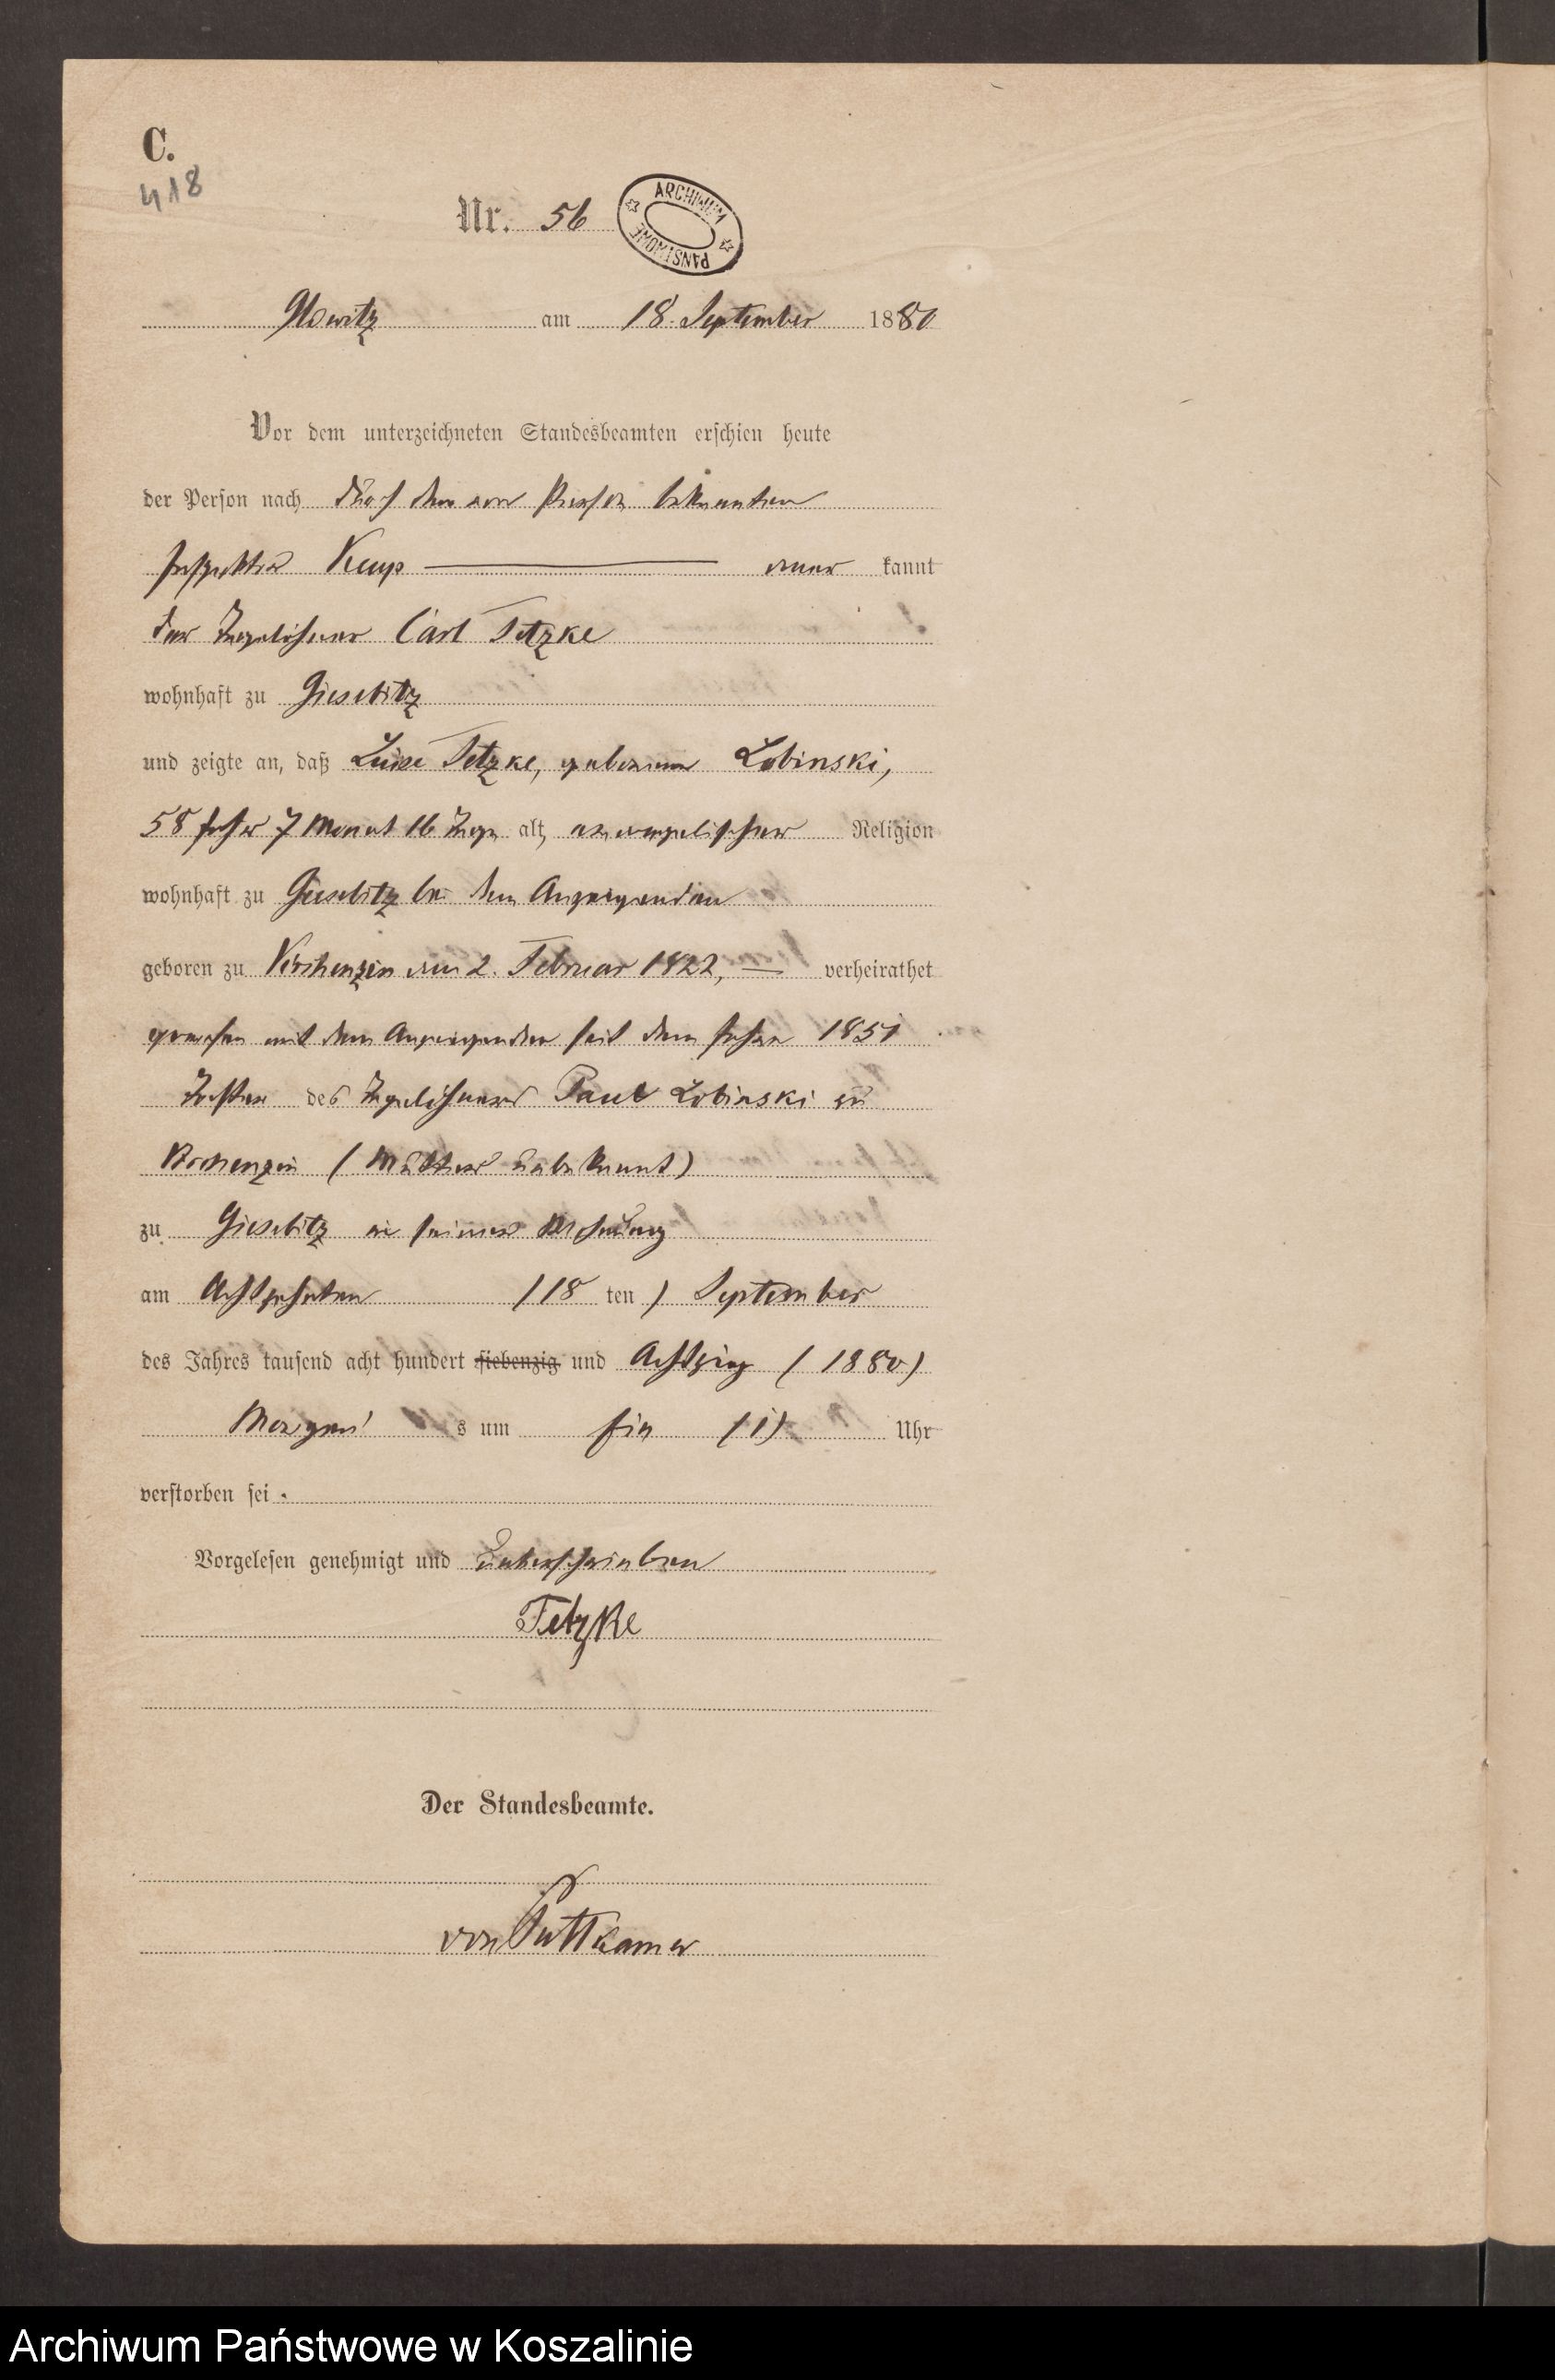 C.
418
Nr. 56
ARCHIWUM PAŃSTWOWE
Glowitz am 18. September 1880
Vor dem unterzeichneten Standesbeamten erschien heute
der Person nach durch den von Person bekannten
Inspektor Kemp aner kannt
der Tagelöhner Carl Tetzke
wohnhaft zu Giesebitz
und zeigte an, daß Luise Tetzke, geborene Lobinski,
58 Jahr 7 Monat 16 Tage alt, evangelischer Religion
wohnhaft zu Giesebitz bei dem Anzeigenden
geboren zu den 2. Februar 1822, — verheirathet
gewesen mit dem Anzeigenden seit dem Jahre 1851
Tochter des Tagelöhners Paul Lobinski zu
(Mutter unbekannt)
zu Giesebitz in seiner Wohnung
am Achtzehnten (18 ten) September
des Jahres tausend acht hundert siebenzig und Achtzig (1880)
Morgen s um Ein (1) Uhr
verstorben sei.
Vorgelesen genehmigt und unterschrieben
Tetzke
Der Standesbeamte.
von Puttkamer
Archiwum Państwowe w Koszalinie